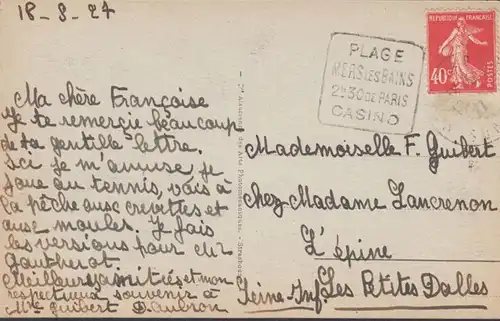 18-8-27
Ma chère Françoise
Je te remercie beaucoup
de ta gentille lettre.
Ici je m'amuse je
joue au tennis, vais à
la pêche aux crevettes et
aux moules. Je fais
les versions pour
Gautherot
Meilleures amitiés et mon
respectueux souvenir à
Mme Guibert D.
PLAGE
MERS LES BAINS
2h30 DE PARIS
CASINO
REPUBLIQUE FRANÇAISE
40c
POSTES
Mademoiselle F. Guibert
chez Madame Lancrenon
L'épine
Les Petites Dalles
Seine Inf.